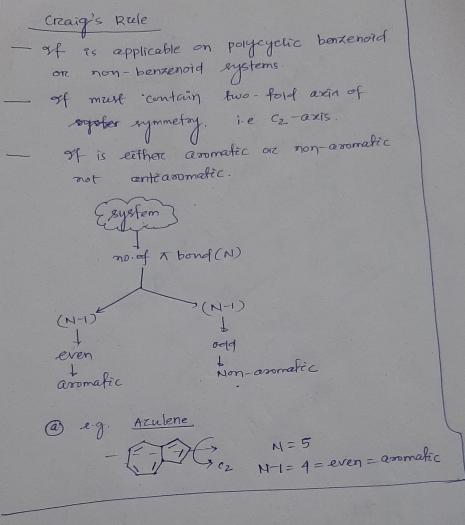 Craig's Rule
— It is applicable on polycyclic benzenoid
or non-benzenoid systems.
— It must contain two-fold axis of
symmetry. i.e C2-axis.
— It is either aromatic or non-aromatic
not antearomatic.
System
no. of π bond (N)
(N-1) (N-1)
even odd
aromatic Non-aromatic
ⓐ e.g. Azulene
C2 N = 5
N-1 = 4 = even = aromatic